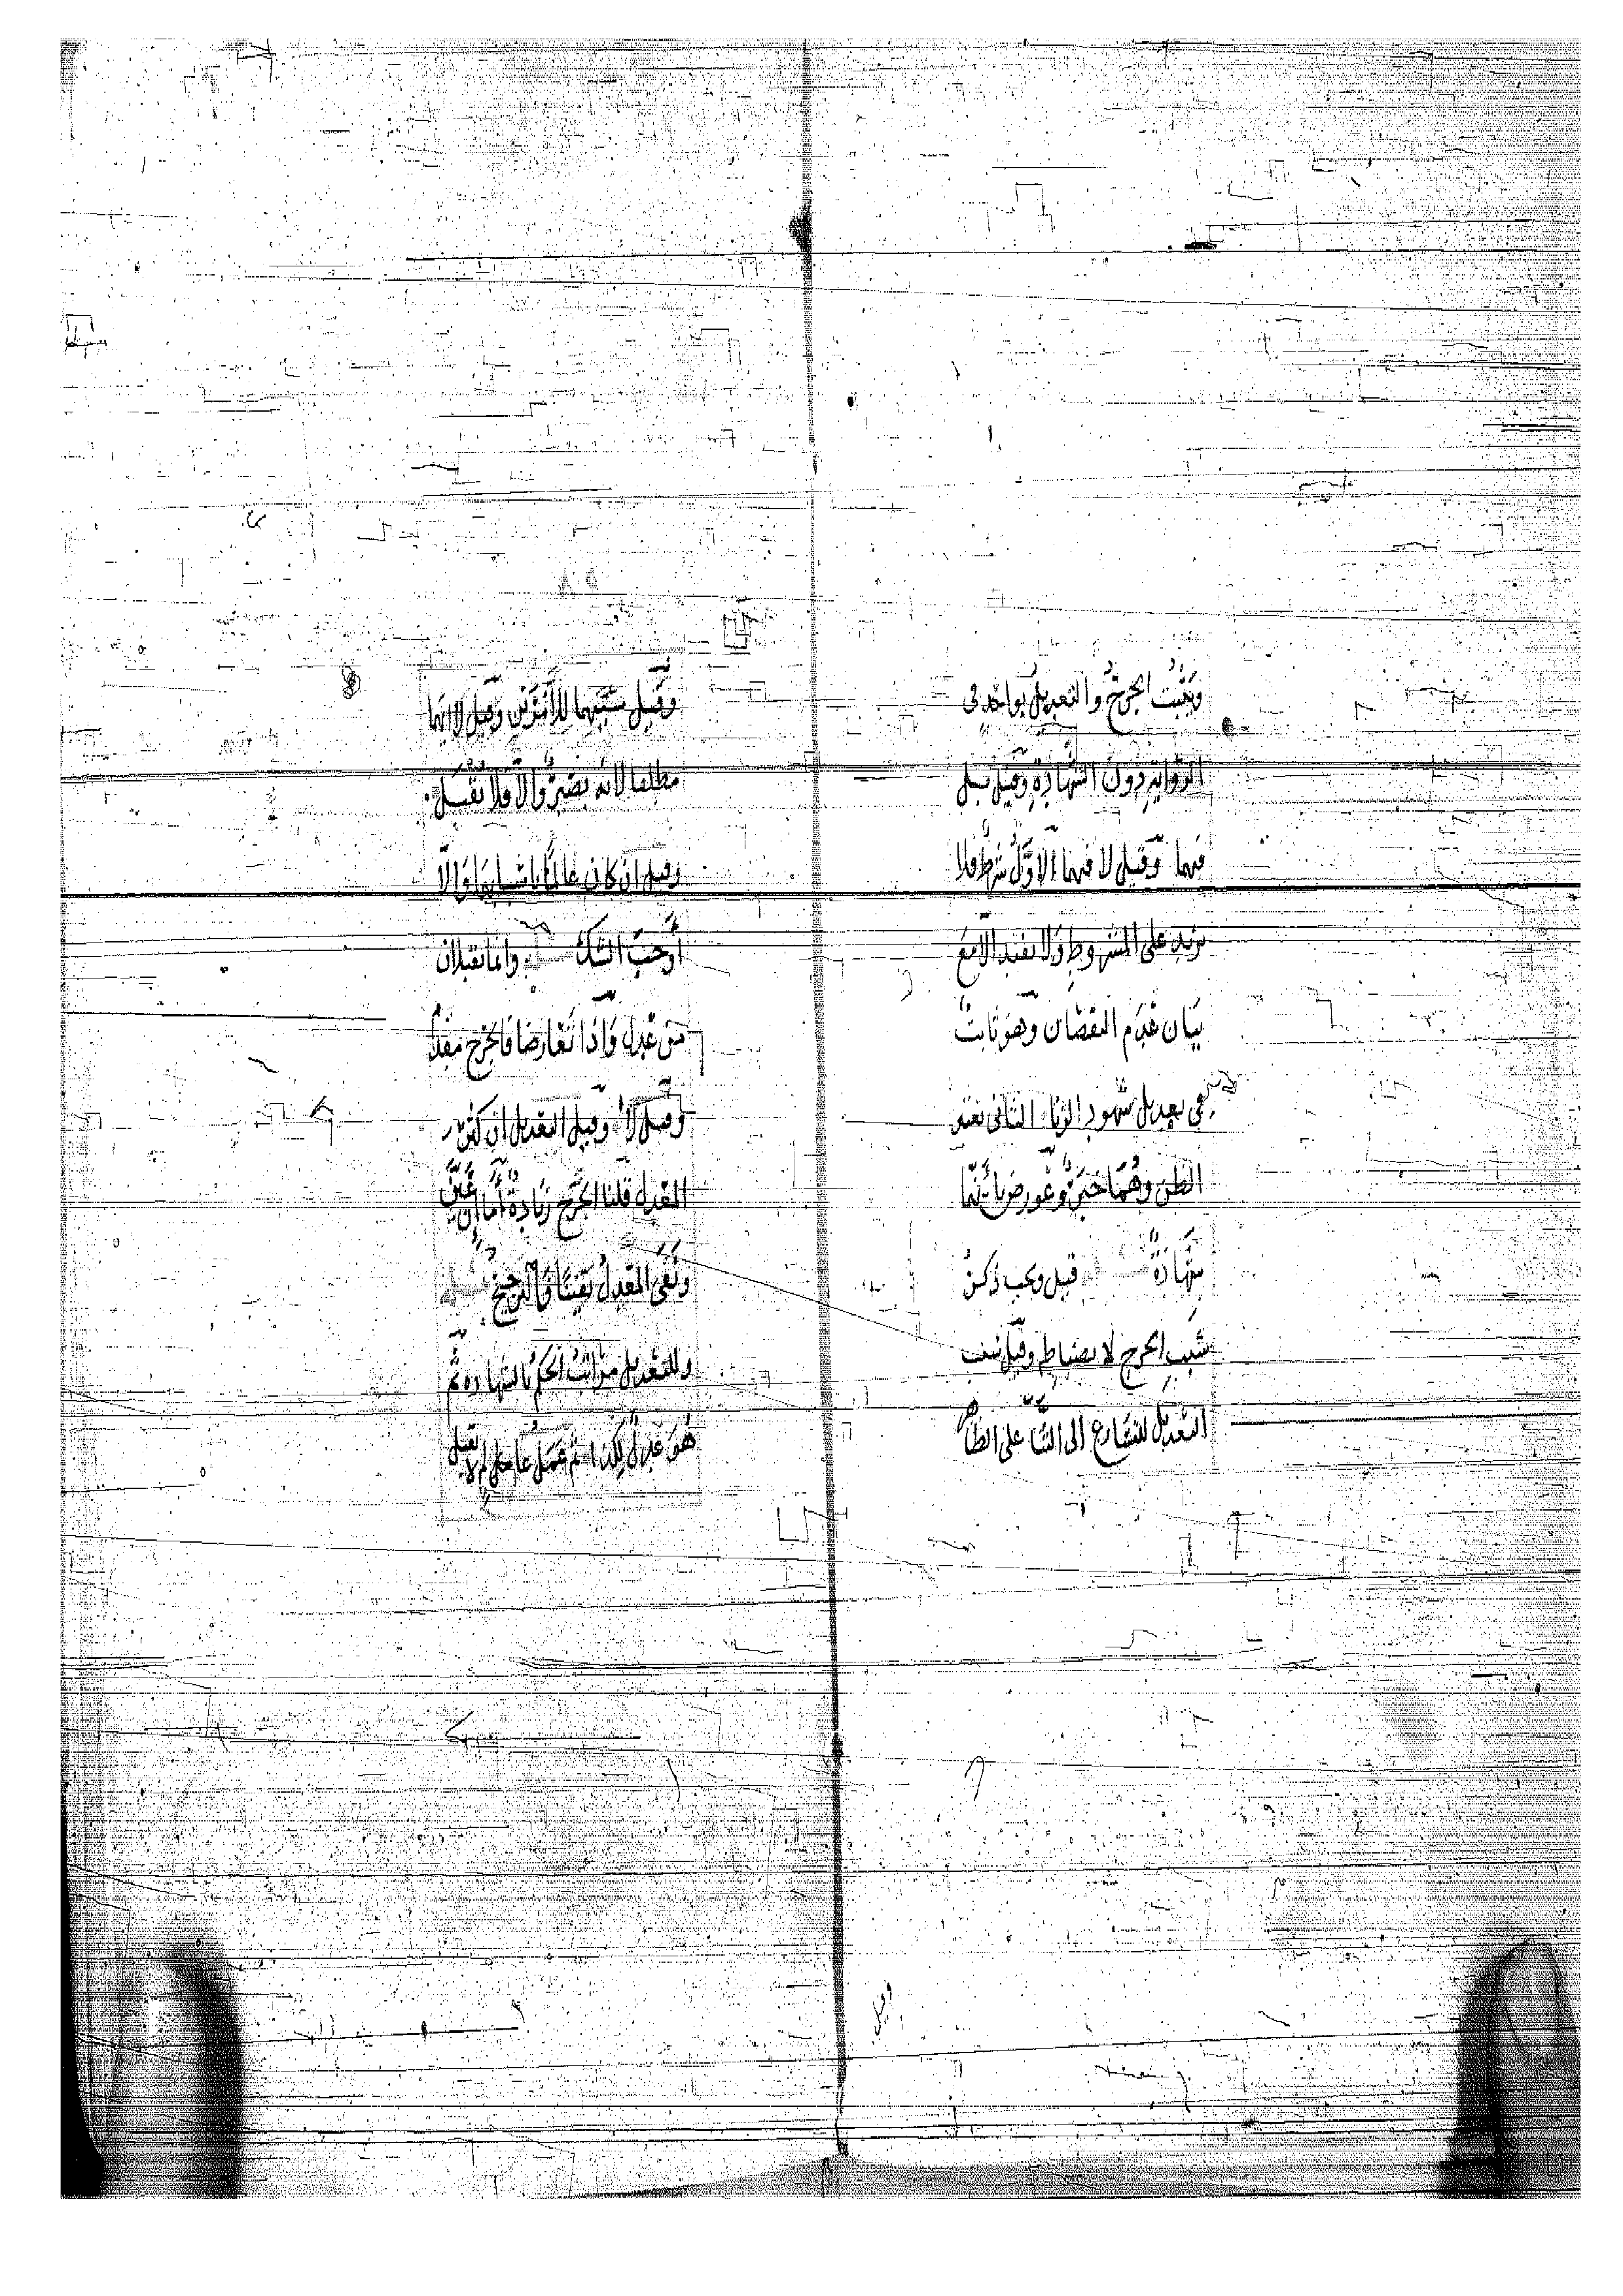 ويثبت الجرح والتعديل بواحد في
الرواية دون الشهادة وقيل بل
فيهما وقيل لا فيهما الأول شرط فلا
يزيد على المشروط ولا يفيد الا مع
بيان عدم النقصان وهو ثابت
في تعديل شهود الزنا الثاني يفيد
الظن وهما خبر وعورض بأنهما
شهادة قيل ويجب ذكر
سبب الجرح لا بضابط وقيل سبب
التعديل للتسارع الى الثنا على الظاهر
وقيل سببهما للأمرين وقيل لا أيهما
مطلقا لانه بصير والا فلا تقبل
وقيل ان كان عالما باسبابهما والا
أوجب الشك وانما يقبلان
من عدل واذا تعارضا فالجرح مقدم
وقيل لا وقيل التعديل ان كثر
المعدل قلنا الجرح زيادة أما ان عين
ونفى المعدل يقينا فالترجيح
وللتعديل مراتب الحكم بالشهادة ثم
هو عدل لكن ثم عمل عالم لا يقبل
وقيل